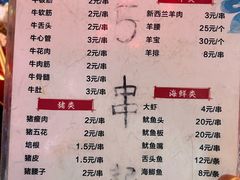 牛软筋 2元/串
牛筋 2元/串
牛舌头 2元/串
牛心管 3元/串
牛花肉 2元/串
牛肉筋 2元/串
牛骨髓 3元/串
牛肚 2元/串
猪类
猪瘦肉 2元/串
猪五花 2元/串
培根 1.5元/串
猪皮 1.5元/串
猪腰子 2元/串
5
串
起
新西兰羊肉 3元/串
羊腰 4元/串
羊宝 4元/串
羊排 8元/串
海鲜类
大虾 4元/串
鱿鱼头 2元/串
鱿鱼板 5元/串
鱿鱼嘴 5元/串
舌头鱼 5元/串
海鲫鱼 8元/串